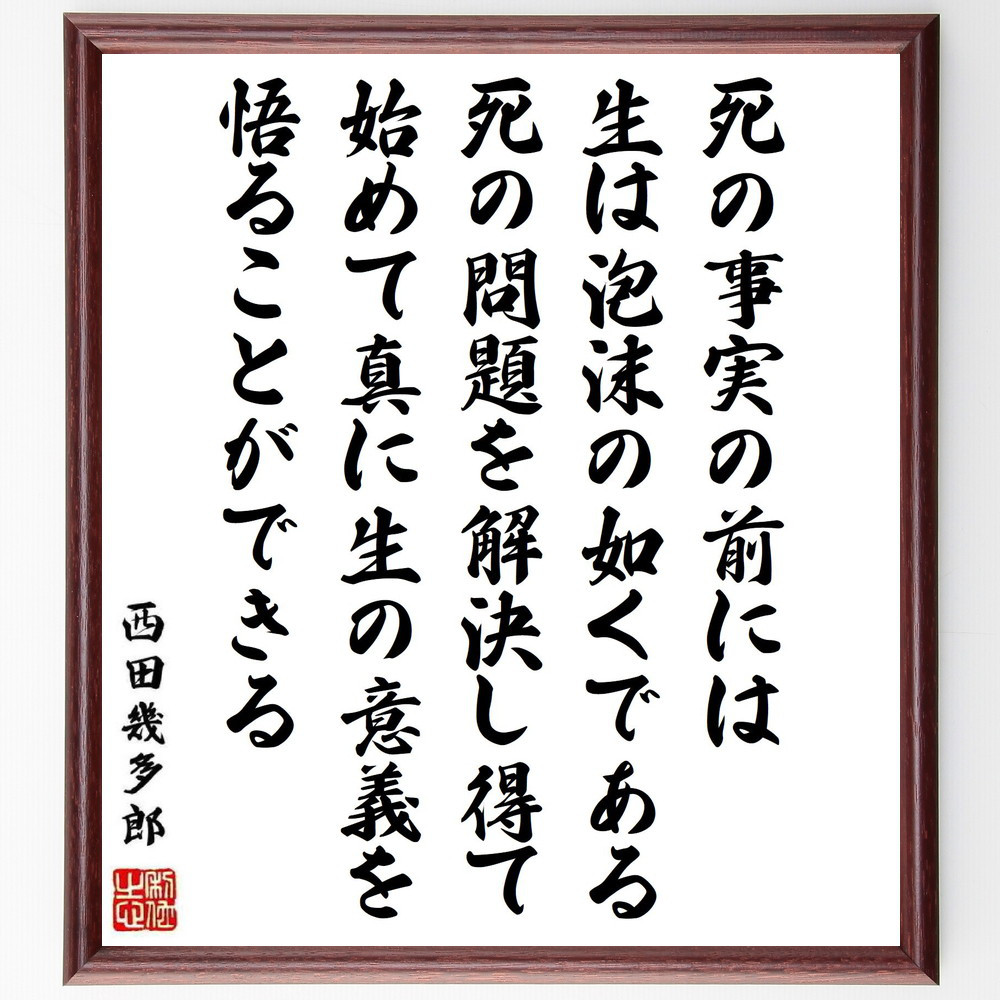 死の事実の前には
生は泡沫の如くである
死の問題を解決し得て
始めて真に生の意義を
悟ることができる
西田幾多郎